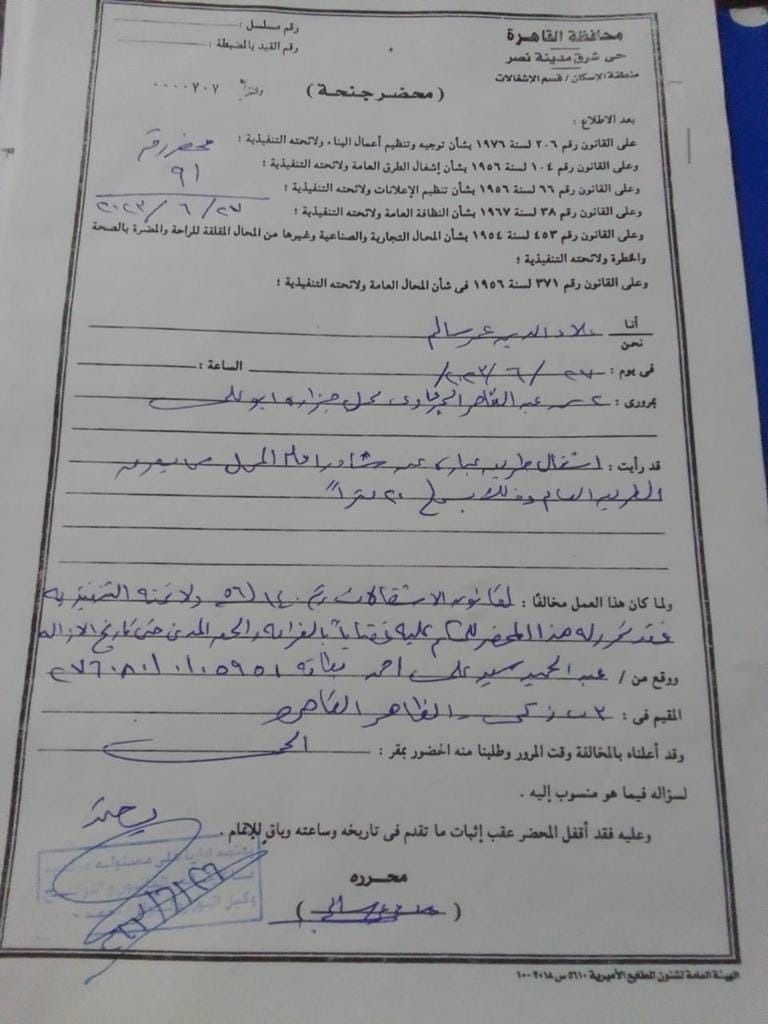 محافظة القاهرة
حى شرق مدينة نصر
منطقة الإسكان / قسم الإشغالات
رقم مسلسل :
رقم القيد بالمضبطة :
( محضر جنحة )
٠٠٠٠٧٠٧
بعد الاطلاع :
على القانون رقم ٢٠٦ لسنة ١٩٧٦ بشأن توجيه وتنظيم أعمال البناء ولائحته التنفيذية ؛
وعلى القانون رقم ١٠٤ لسنة ١٩٥٦ بشأن إشغال الطرق العامة ولائحته التنفيذية ؛
وعلى القانون رقم ٦٦ لسنة ١٩٥٦ بشأن تنظيم الإعلانات ولائحته التنفيذية ؛
وعلى القانون رقم ٣٨ لسنة ١٩٦٧ بشأن النظافة العامة ولائحته التنفيذية ؛
وعلى القانون رقم ٤٥٣ لسنة ١٩٥٤ بشأن المحال التجارية والصناعية وغيرها من المحال المقلقة للراحة والمضرة بالصحة
والخطرة ولائحته التنفيذية ؛
وعلى القانون رقم ٣٧١ لسنة ١٩٥٦ فى شأن المحال العامة ولائحته التنفيذية ؛
محضر رقم
٩١
٢٧ / ٦ / ٢٠٢٣
أنا
نحن
علاء الدين عمر سالم
فى يوم : ٢٧ / ٦ / ٢٠٢٣ الساعة :
بمرورى : ٢ ش عبد القادر محل جزارة ابو
قد رأيت : اشغال طريق عبارة عن امام المحل
الطريق العام وذلك ٢٠ مترا"
ولما كان هذا العمل مخالفًا : لقانون الاشغالات رقم ١٤٠ / ٥٦ ولائحته التنفيذية
فقد تحرر له هذا المحضر للحكم عليه بالغرامة و حتى تاريخ الازالة
ووقع من / عبد الحميد سيد على احمد بطاقة
المقيم فى : ٣ ش زكى - الظاهر القاهرة
وقد أعلناه بالمخالفة وقت المرور وطلبنا منه الحضور بمقر : الحى
لسؤاله فيما هو منسوب إليه .
وعليه فقد أقفل المحضر عقب إثبات ما تقدم فى تاريخه وساعته وباق للإتمام .
محرره
الهيئة العامة لشئون المطابع الأميرية ٥٦١٠ س ٢٠١٨ - ١٠٠